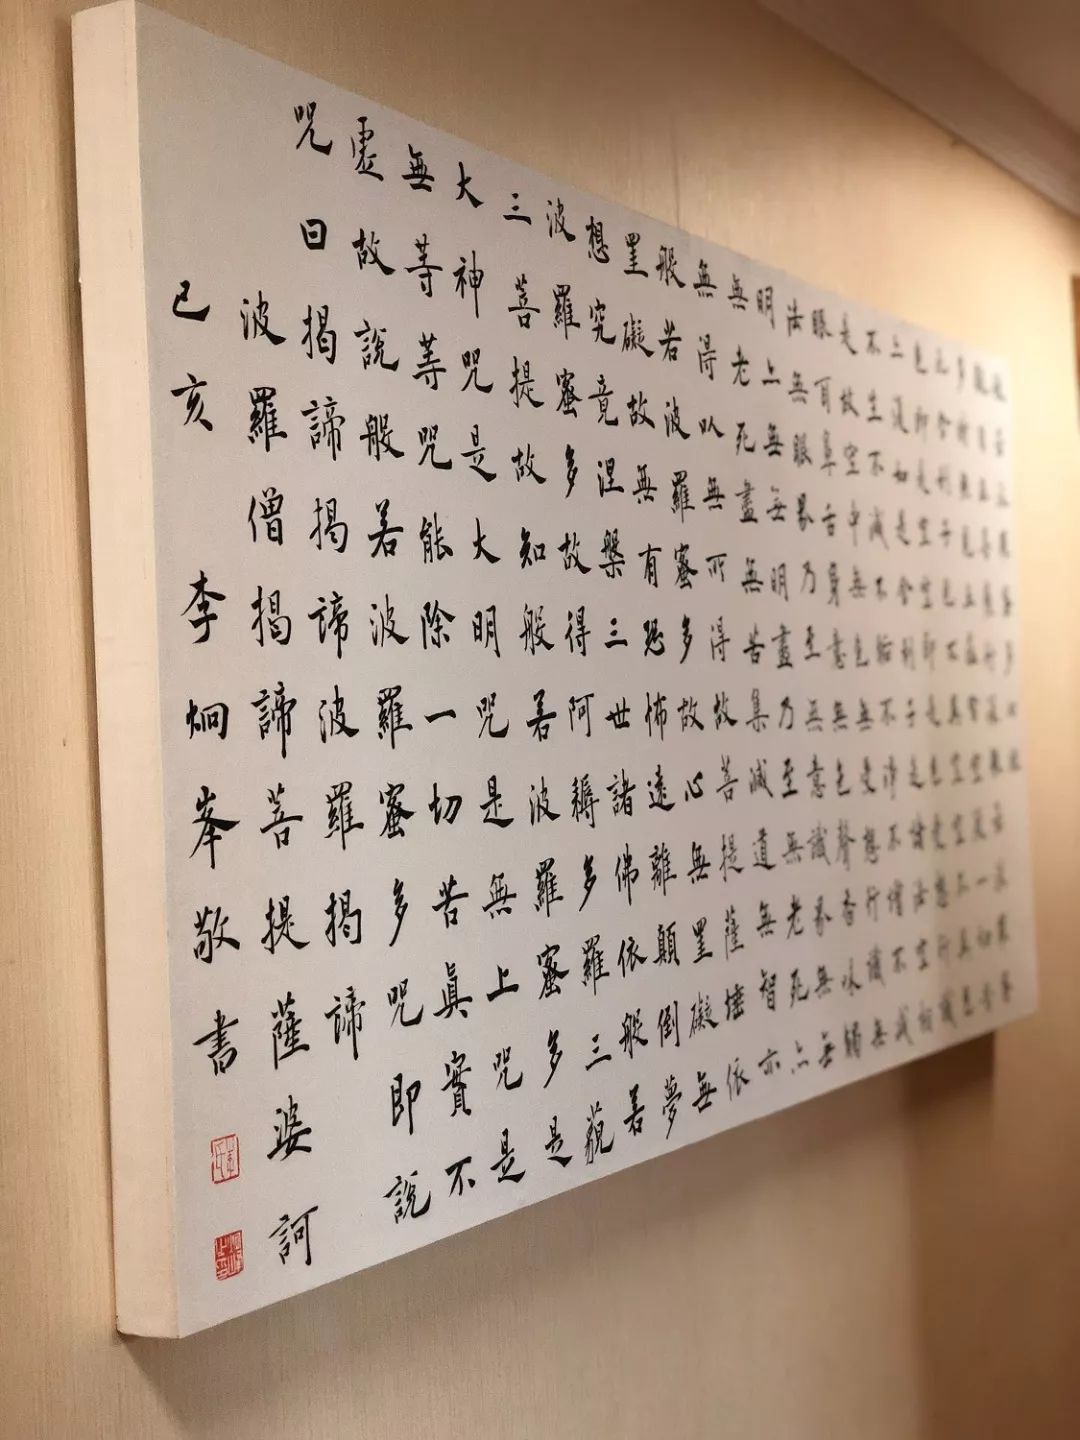 色即是空空即是色受想行識
亦復如是舍利子是諸法空相
不生不滅不垢不淨不增不減
是故空中無色無受想行識無
眼耳鼻舌身意無色聲香味觸
法無眼界乃至無意識界無無
明亦無無明盡乃至無老死亦
無老死盡無苦集滅道無智亦
無得以無所得故菩提薩埵依
般若波羅蜜多故心無罣礙無
罣礙故無有恐怖遠離顛倒夢
想究竟涅槃三世諸佛依般若
波羅蜜多故得阿耨多羅三藐
三菩提故知般若波羅蜜多是
大神咒是大明咒是無上咒是
無等等咒能除一切苦真實不
虛故說般若波羅蜜多咒即說
咒曰揭諦揭諦波羅揭諦
波羅僧揭諦菩提薩婆訶
己亥李炯峯敬書